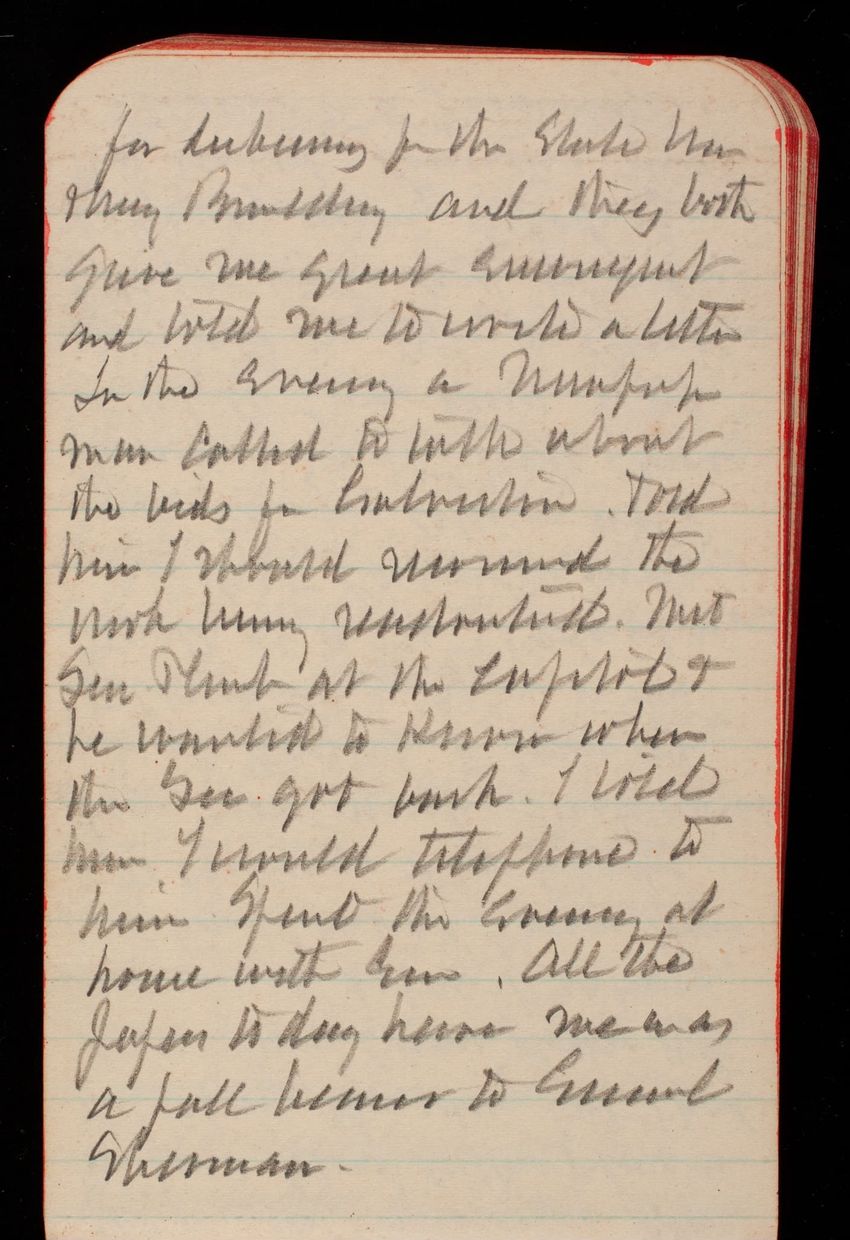 for the State War
Navy Building and they both
gave me great
and told me to write a letter
In the Evening a Newspaper
man called to talk about
the bids for Galveston. Told
him I should recommend the
work being readvertised. Met
Gen at the Capitol &
he wanted to know when
the Sec got back. I told
him I would telephone to
him Spent the Evening at
home with Em. All the
Papers to day have me as
a pall bearer to General
Sherman.